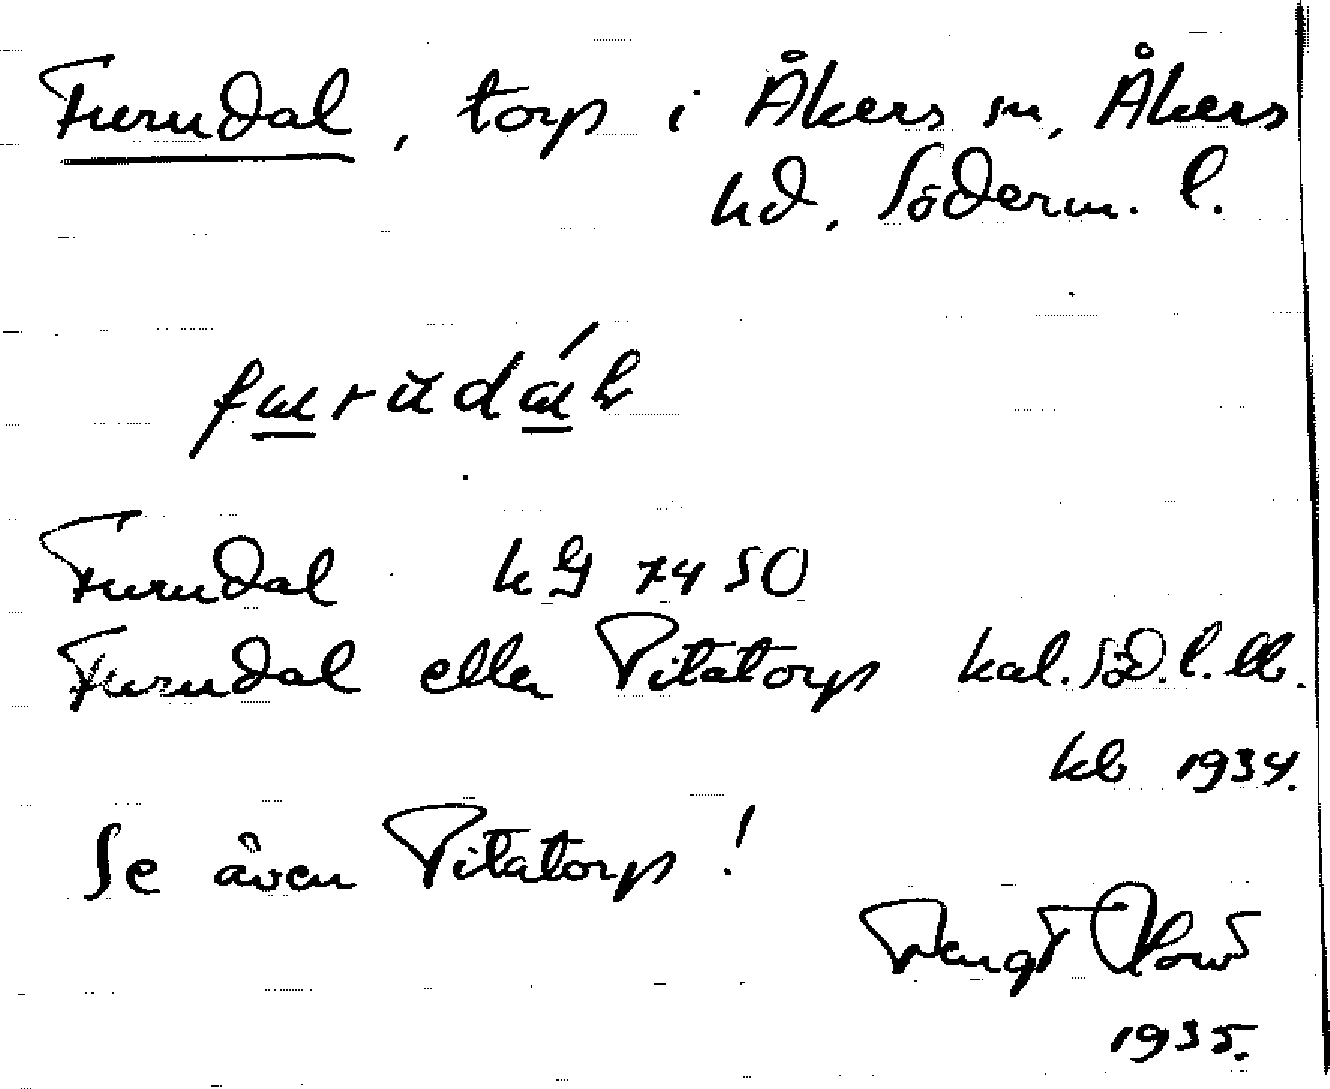 Furudal, torp i Åkers sn, Åkers
hd, Söderm. l.
furudál
Furudal kG 7450
Furudal eller Pitatorp kal. Söd. l. lb.
kb 1934.
Se även Pitatorp!
Bengt
1935.